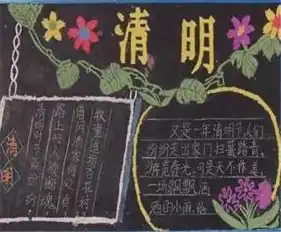 清明
清明
清明时节雨纷纷
路上行人欲断魂
借问酒家何处有
牧童遥指杏花村
又是一年清明节,人们
纷纷走出家门扫墓踏青,
游览春光,可是天不作美,
一场飘飘洒
洒的小雨,给